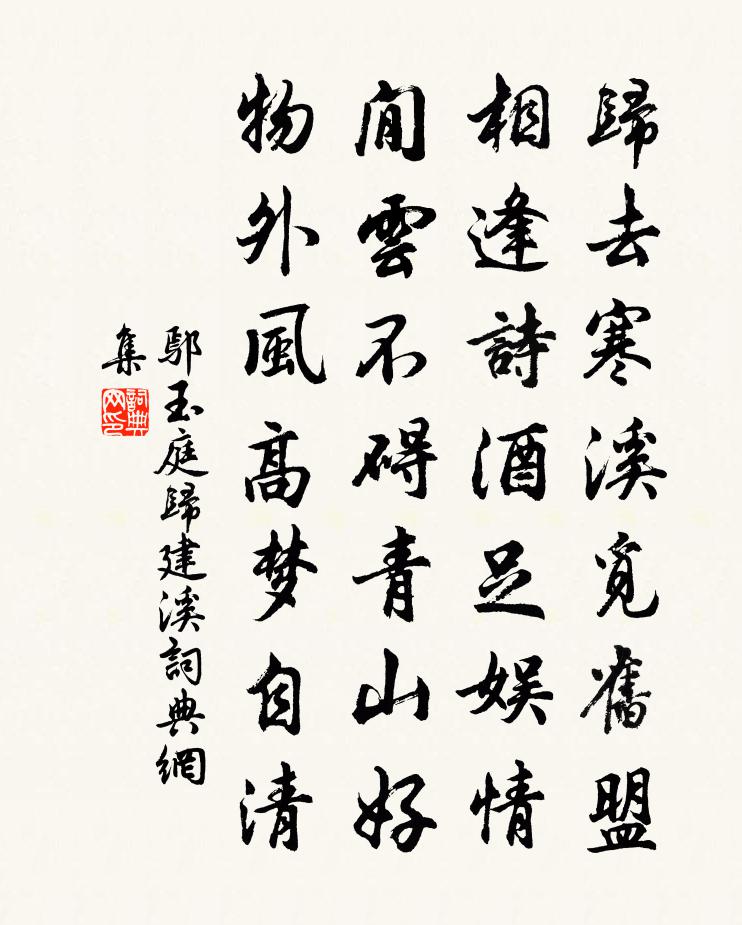 歸去寒溪覓舊盟
相逢詩酒足娛情
閒雲不碍青山好
物外風高梦自清
鄔玉庭歸建溪詞典網
集
詞典
网印